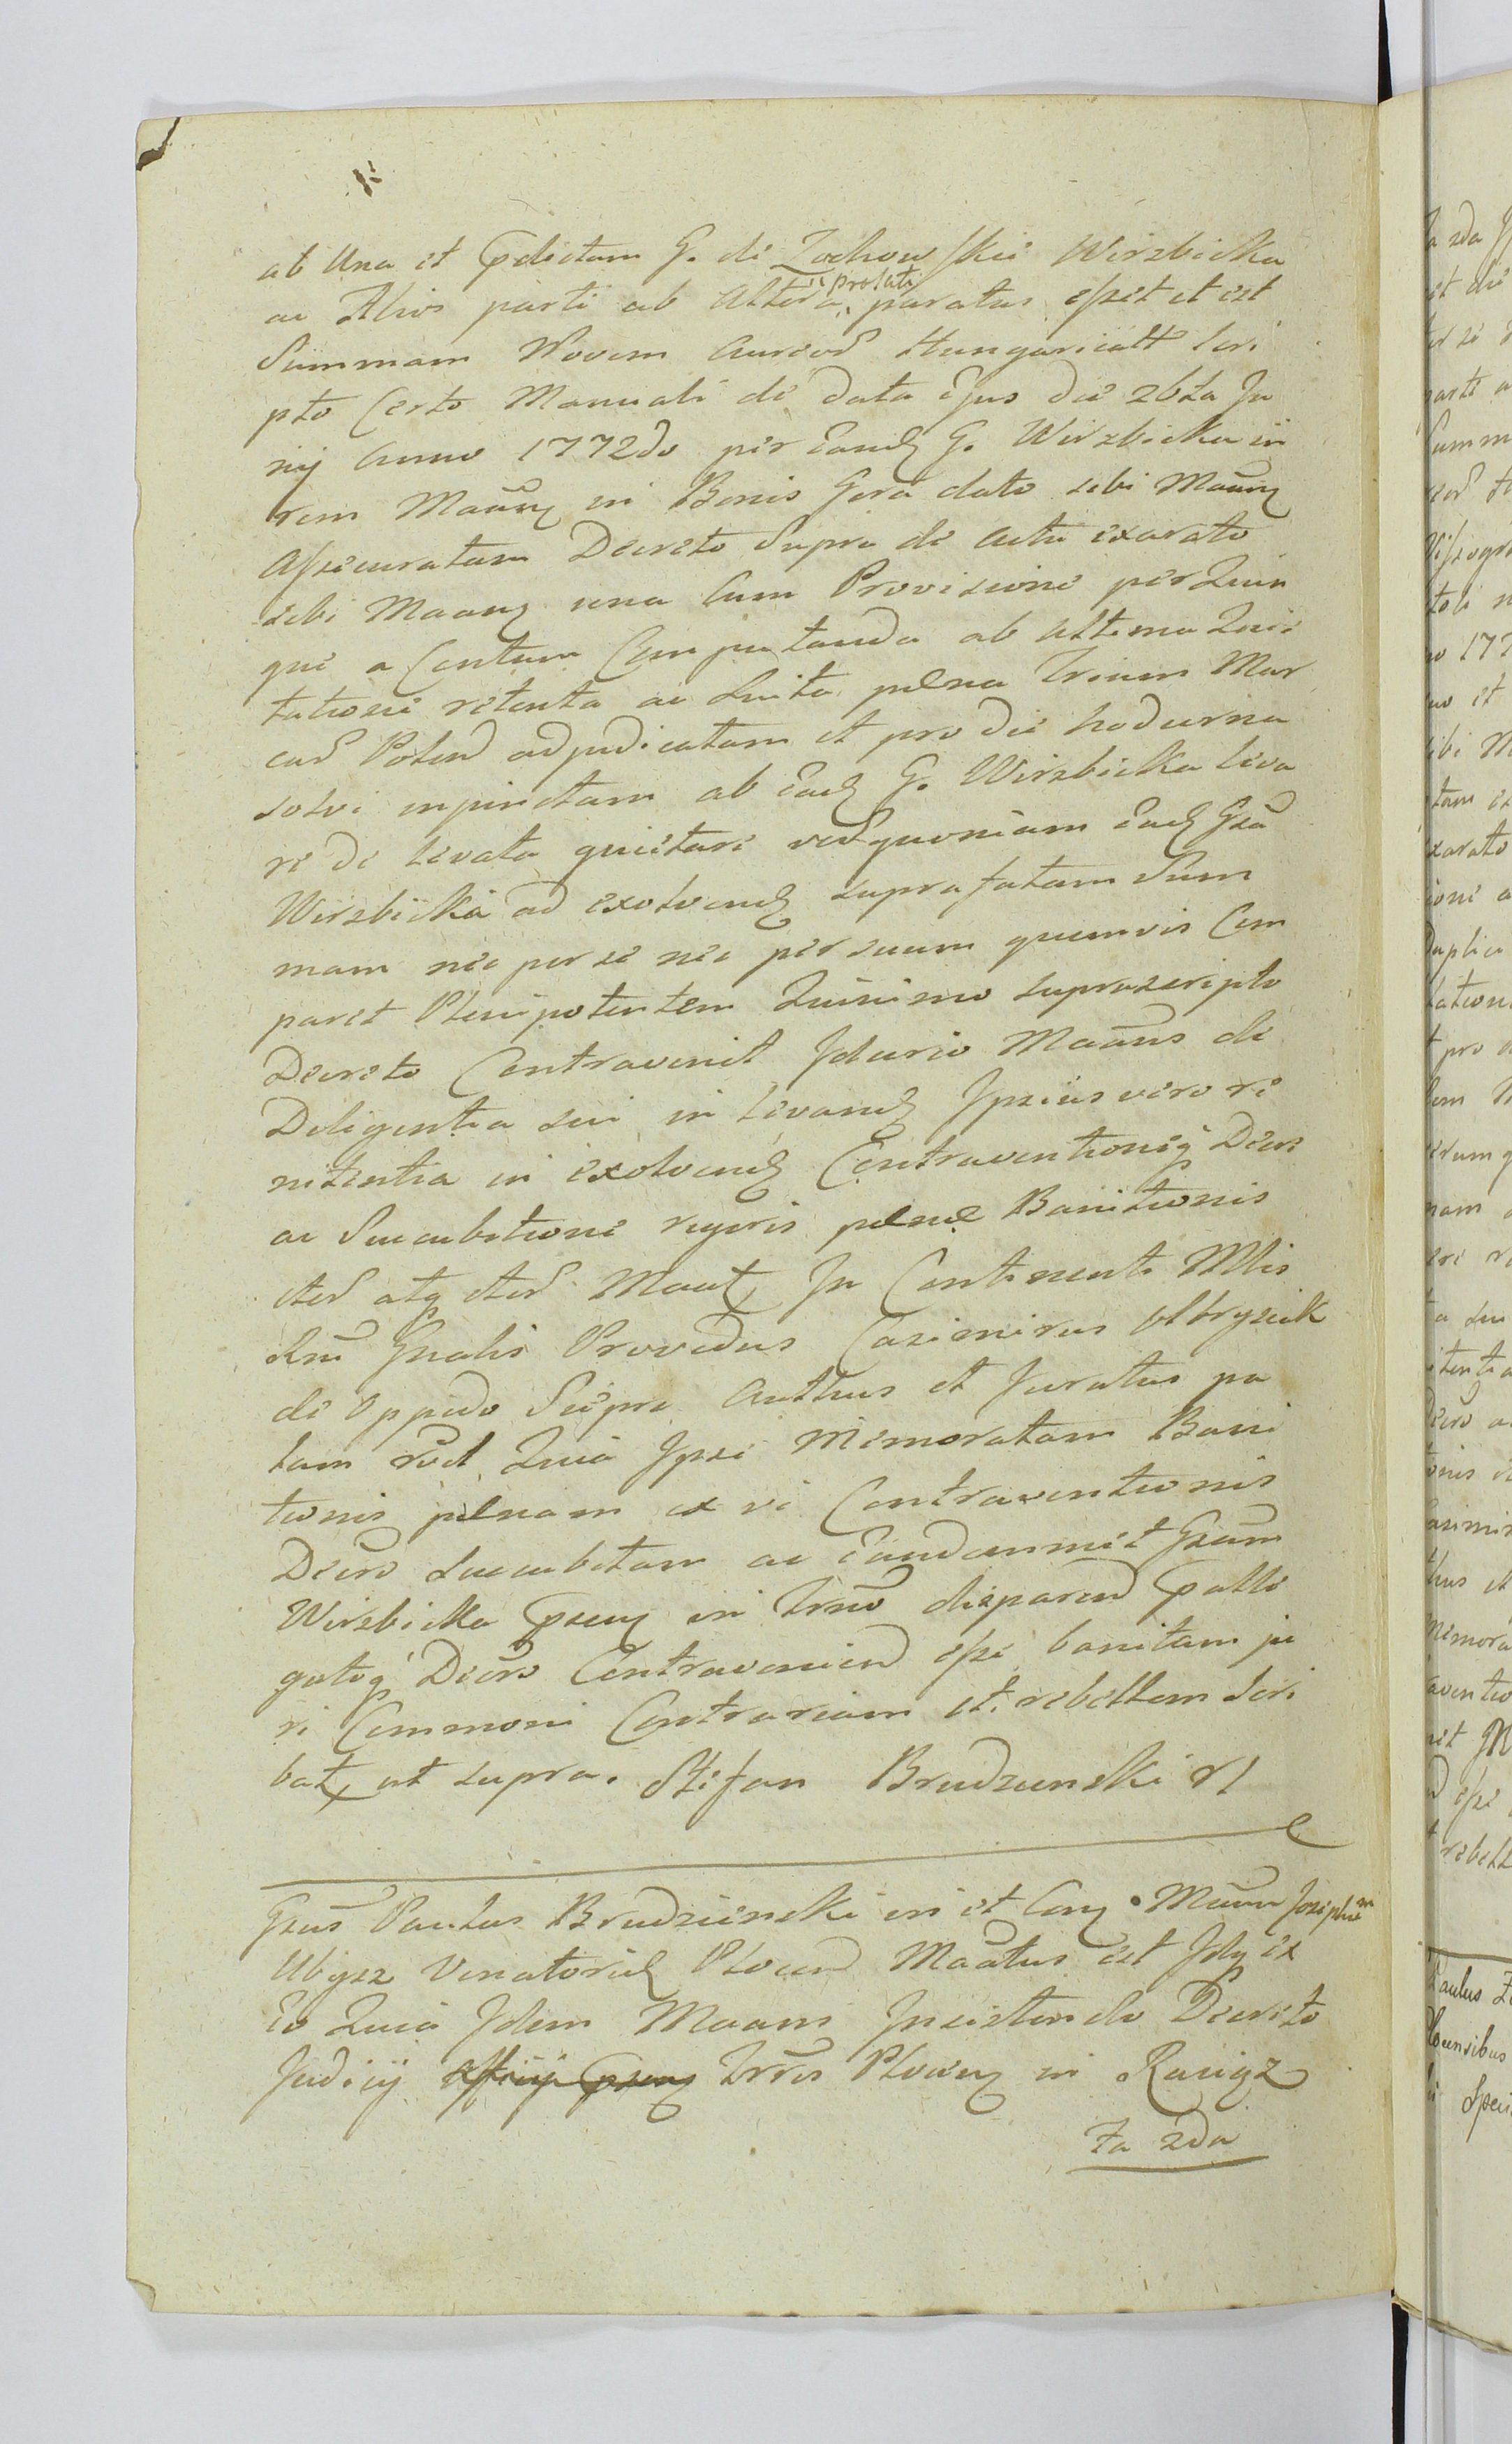 ab Una et Pdictam G. de Zochowskie Wirzbicka
ac Alios parti ab Altera prolati paratus esset et est
Summam Novem Aureor Hungaricall Scri
pto Certo Manuali de data ejus die 26ta Ju
nij Anno 1772do per Eand G. Wirzbicka in
rem in Bonis Gora dato sibi
Assecuratam Decreto Supra de actu exarato
sibi una Cum Provisione per Quin
que a Centum Computanda ab Ultima Quie
tatione retenta ac Luita pœna Trium Mar
car Polon adjudicatam et pro die hodierna
solvi injunctam ab Ead G. Wirzbicka leva
re de levata quietare verum quoniam Ead Gsa
Wirzbicka ad exolvend suprafatam Sum
mam nec per se nec per suum quemvis Com
paret Plenipotentem Quinimo suprascripto
Decreto Contravenit Idcirco Maans de
Diligentia sui in levand Ipsius vero re
nitentia in exolvend Contraventioneq Decre
ac Succubitione rigoris pœnæ Banitionis
itter atq itter Maat In Continenti Mlis
Rni Gnalis Providus Casimirus Olbrysiak
de Oppido Sierpc Authus et Juratus pa
lam rud Quia Ipse Memoratam Bani
tionis pœnam ex vi Contraventionis
Decro Succubitam ac Eandemmet Gsam
Wirzbicka in Trno disparen
Decro Contravenien esse banitam ju
ri Commoni Contrariam et rebellem Scri
bat ut supra. Stefan Brudzinski
Gsus Paulus Brudzienski in et Con Josephum
Ubysz Venatorid Plocen Maatus est Idq ex
Eo Quia Idem Maans Insistendo Decreto
Judicij Trris Plocen in Raciąż
Fa 2da